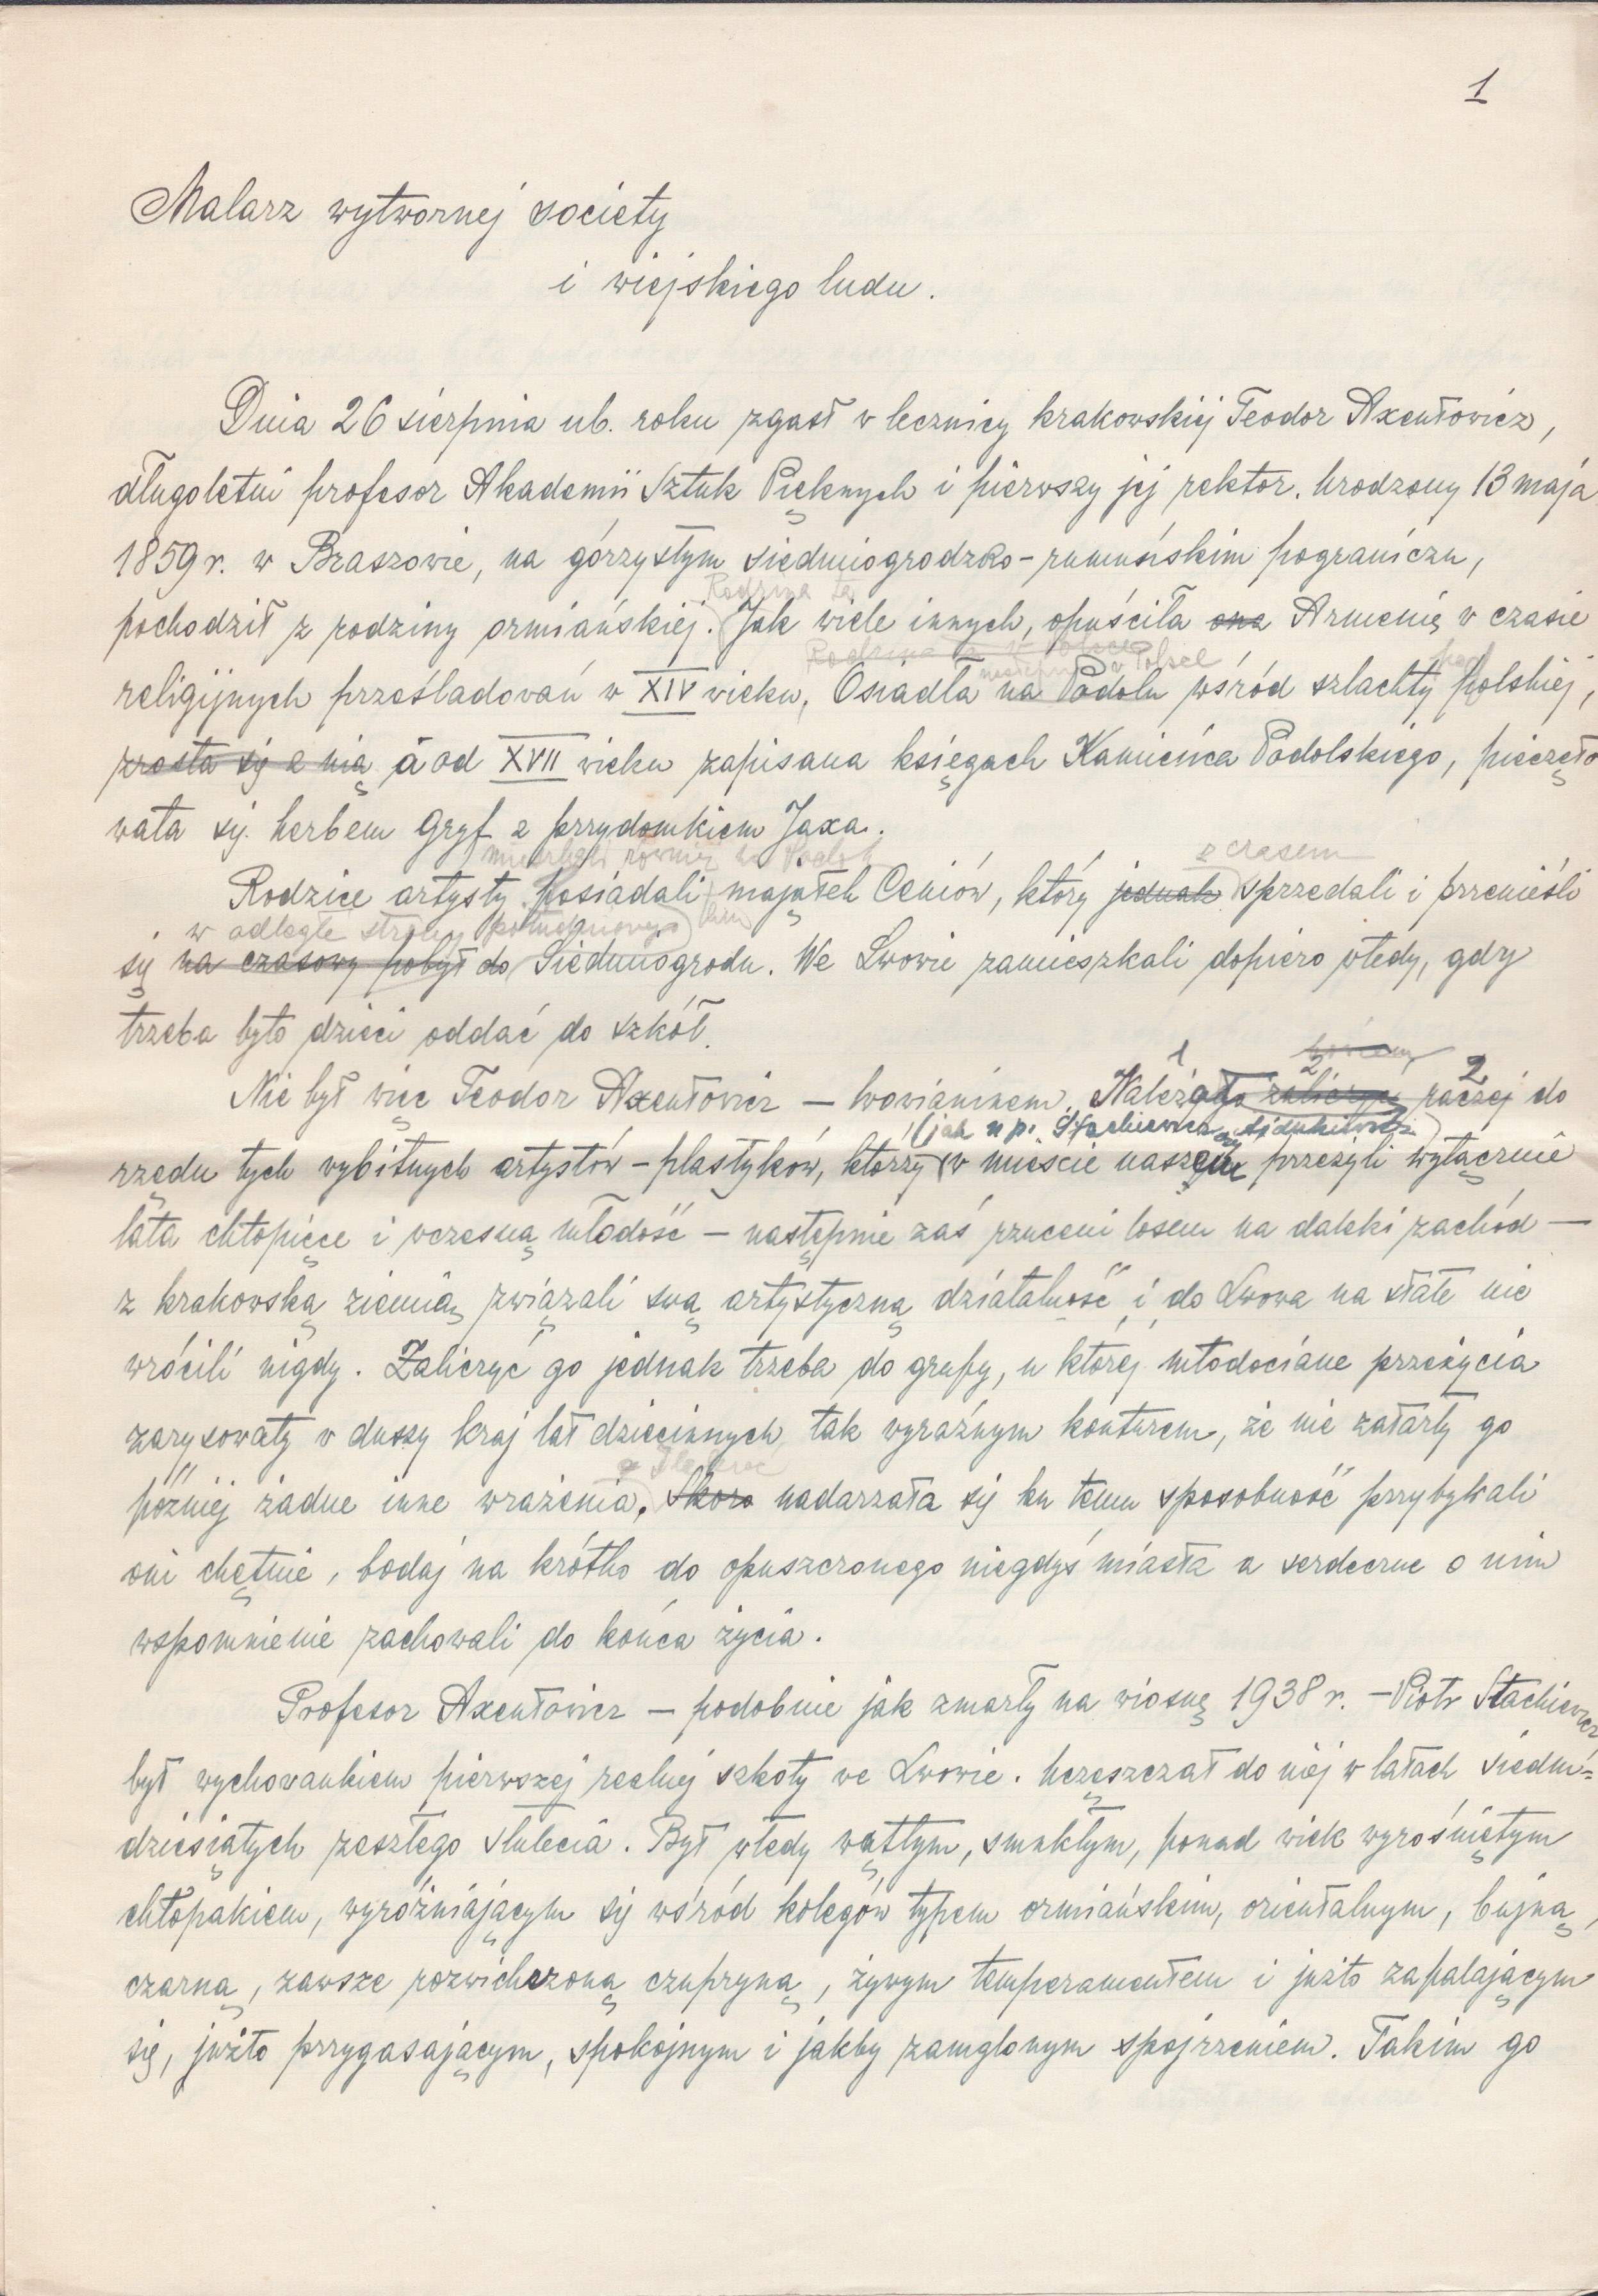 1
Malarz wytwornej society
i wiejskiego ludu.
Dnia 26 sierpnia ub. roku zgasł w lecznicy krakowskiej Teodor Axentowicz,
długoletni profesor Akademii Sztuk Pięknych i pierwszy jej rektor. Urodzony 13 maja
1859 r. w Braszowie, na górzystym siedmiogrodzko-rumuńskim pograniczu,
Rodzina ta
pochodził z rodziny ormiańskiej. Jak wiele innych, opuściła ona Armenię w czasie
w Polsce
religijnych prześladowań w XIV wieku, Osiadła na Podolu wśród szlachty polskiej,
zrosła się z nią a od XVII wieku zapisana księgach Kamieńca Podolskiego, pieczęto
wała się herbem Gryf z przydomkiem Jaxa.
mieszkali również na Podolu
z czasem
Rodzice artysty posiadali majątek Ceniów, który jednak sprzedali i przenieśli
w odległe strony
się na czasowy pobyt do Siedmiogrodu. We Lwowie zamieszkali dopiero wtedy, gdy
trzeba było dzieci oddać do szkół.
1 2 2
Nie był więc Teodor Axentowicz — lwowianinem. Należał zaliczyć raczej do
(jak np. Stachiewicz
rzędu tych wybitnych artystów-plastyków, którzy w mieście naszem przeżyli wyłącznie
lata chłopięce i wczesną młodość — następnie zaś rzuceni losem na daleki zachód —
z krakowską ziemią związali swą artystyczną działalność i do Lwowa na stałe nie
wrócili nigdy. Zaliczyć go jednak trzeba do grupy, u której młodociane przeżycia
zarysowały w duszy kraj lat dziecinnych tak wyraźnym konturem, że nie zatarły go
później żadne inne wrażenia. Skoro nadarzała się ku temu sposobność przybywali
oni chętnie, bodaj na krótko do opuszczonego niegdyś miasta a serdeczne o nim
wspomnienie zachowali do końca życia.
Profesor Axentowicz — podobnie jak zmarły na wiosnę 1938 r. — Piotr Stachiewicz
był wychowankiem pierwszej realnej szkoły we Lwowie. Uczęszczał do niej w latach siedm=
dziesiątych zeszłego stulecia. Był wtedy wątłym, smukłym, ponad wiek wyrośniętym
chłopakiem, wyróżniającym się wśród kolegów typem ormiańskim, orientalnym, bujną,
czarną, zawsze rozwichrzoną czupryną, żywym temperamentem i jużto zapalającym
się, jużto przygasającym, spokojnym i jakby zamglonym spojrzeniem. Takim go